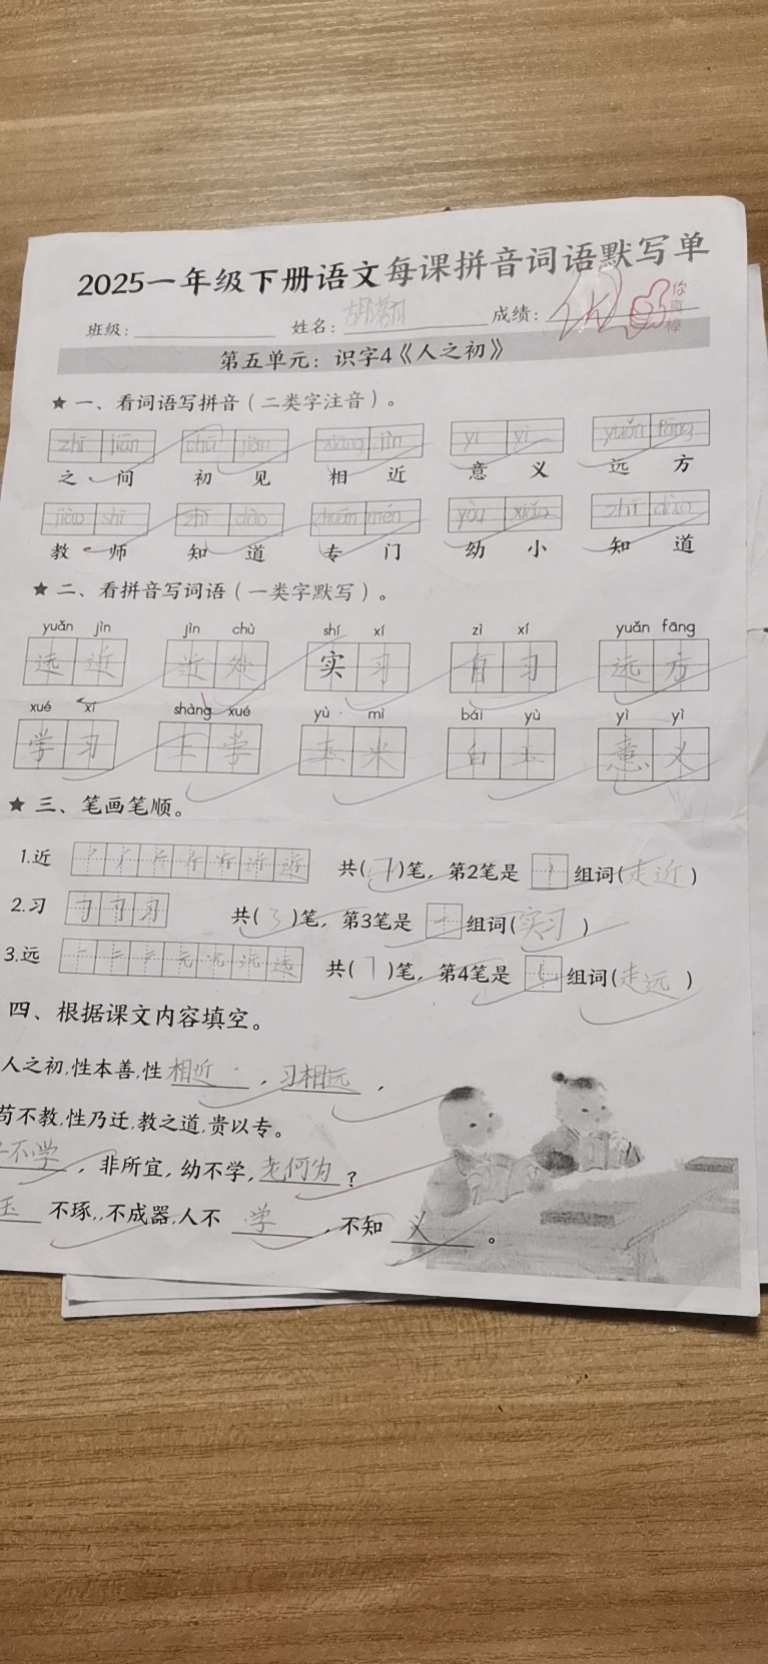 2025一年级下册语文每课拼音词语默写单
班级: 姓名: 成绩:
你真棒
第五单元: 识字4《人之初》
★ 一、看词语写拼音（二类字注音）。
zhī jiān chū jiàn xiāng jìn yì yì yuǎn fāng
之 间 初 见 相 近 意 义 远 方
jiào shī zhī dào zhuān mén yòu xiǎo zhī dào
教 师 知 道 专 门 幼 小 知 道
★ 二、看拼音写词语（一类字默写）。
yuǎn jìn jìn chù shí xí zì xí yuǎn fāng
远 近 近 处 实 习 自 习 远 方
xué xí shàng xué yù mǐ bái yù yì yì
学 习 上 学 玉 米 白 玉 意 义
★ 三、笔画笔顺。
1.近 共(7)笔, 第2笔是 组词(走近)
2.习 共(3)笔, 第3笔是 组词(实习)
3.远 共(7)笔, 第4笔是 组词(走远)
四、根据课文内容填空。
人之初,性本善,性相近, 习相远,
苟不教,性乃迁,教之道,贵以专。
不学, 非所宜, 幼不学,老何为?
玉 不琢,,不成器,人不 学, 不知 义。